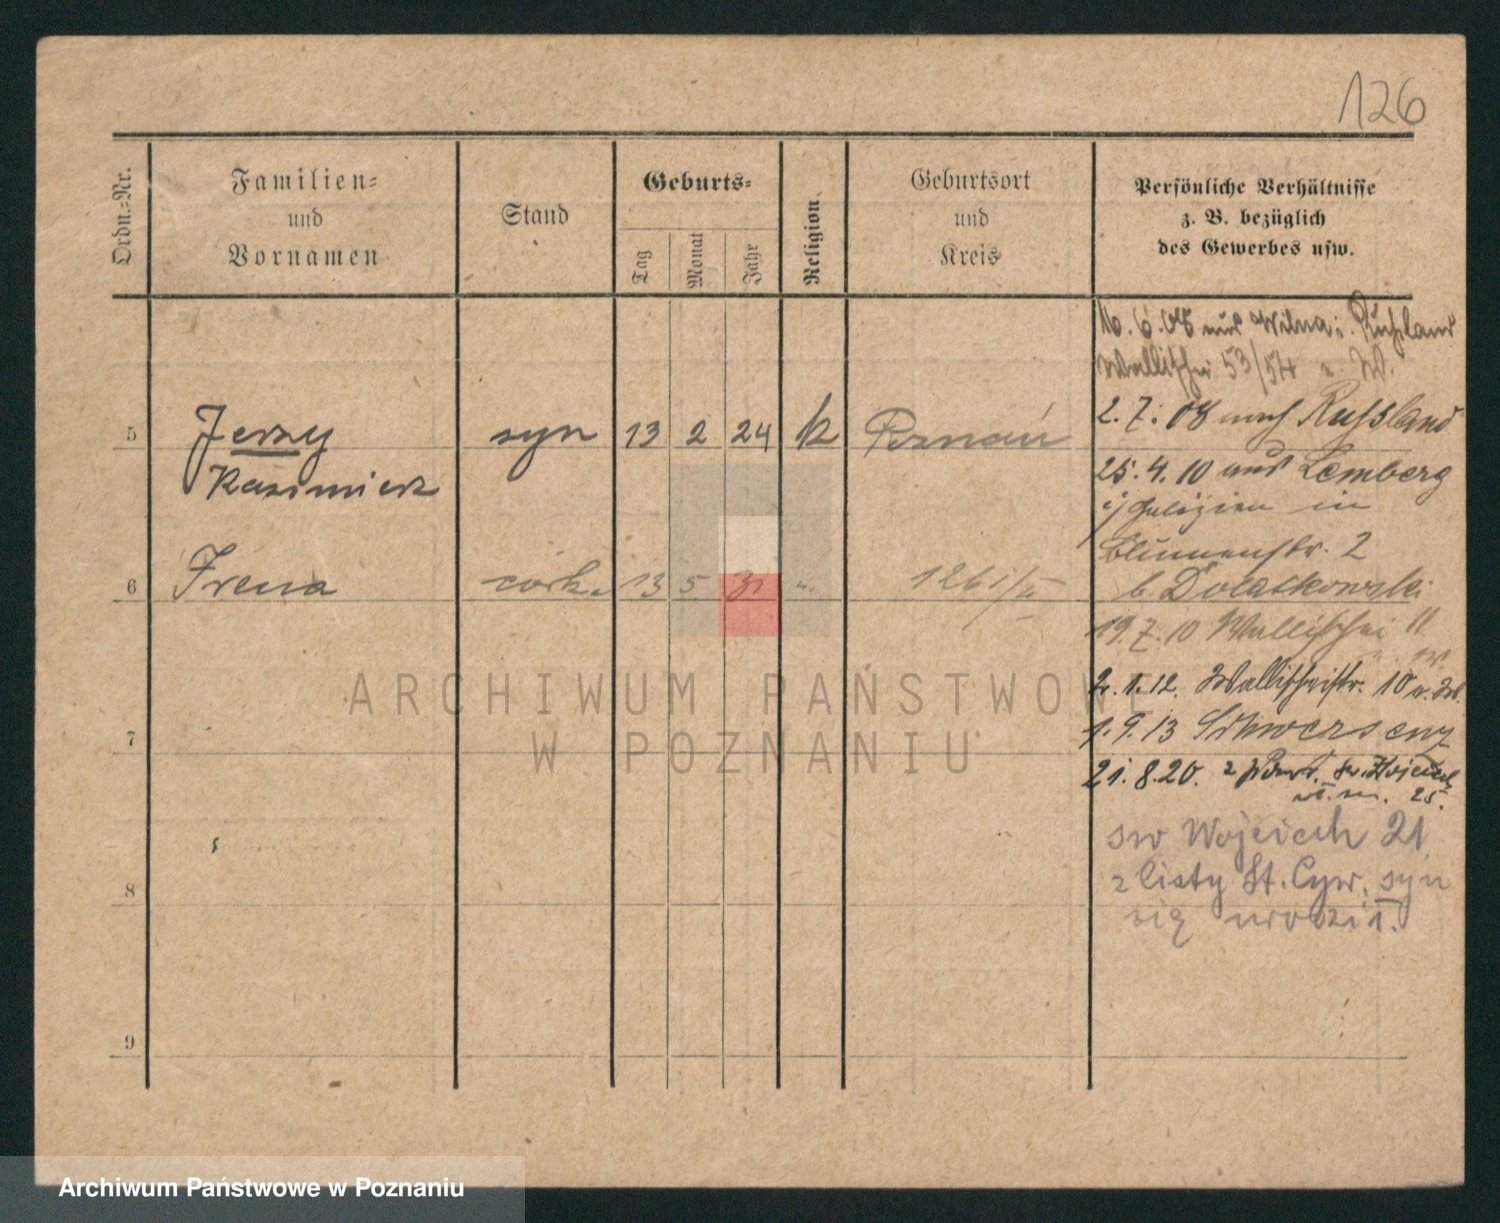 126
Ordn.-Nr.
Familien-
und
Vornamen
Stand
Geburts-
Tag
Monat
Jahr
Religion
Geburtsort
und
Kreis
Persönliche Verhältnisse
z. B. bezüglich
des Gewerbes usw.
16. 6. 08 aus Wilna i. Russland
Wallischei 53/54
2. 7. 08 nach Russland
5 Jerzy syn 13 2 24 k Poznań
Kazimierz
25. 4. 10 aus Lemberg
i/ Galizien in
Blumenstr. 2
6 Irena córka 13 5 31 "
b. Dolatkowski
19. 7. 10 Wallischei 11
1. 12. Wallischeistr. 10
1. 9. 13 Schwersenz
7
21. 8. 20. z
25.
św Wojciech 21
8
z listy St. Cyw. syn
się urodził.
9
ARCHIWUM PAŃSTWOWE
W POZNANIU
Archiwum Państwowe w Poznaniu